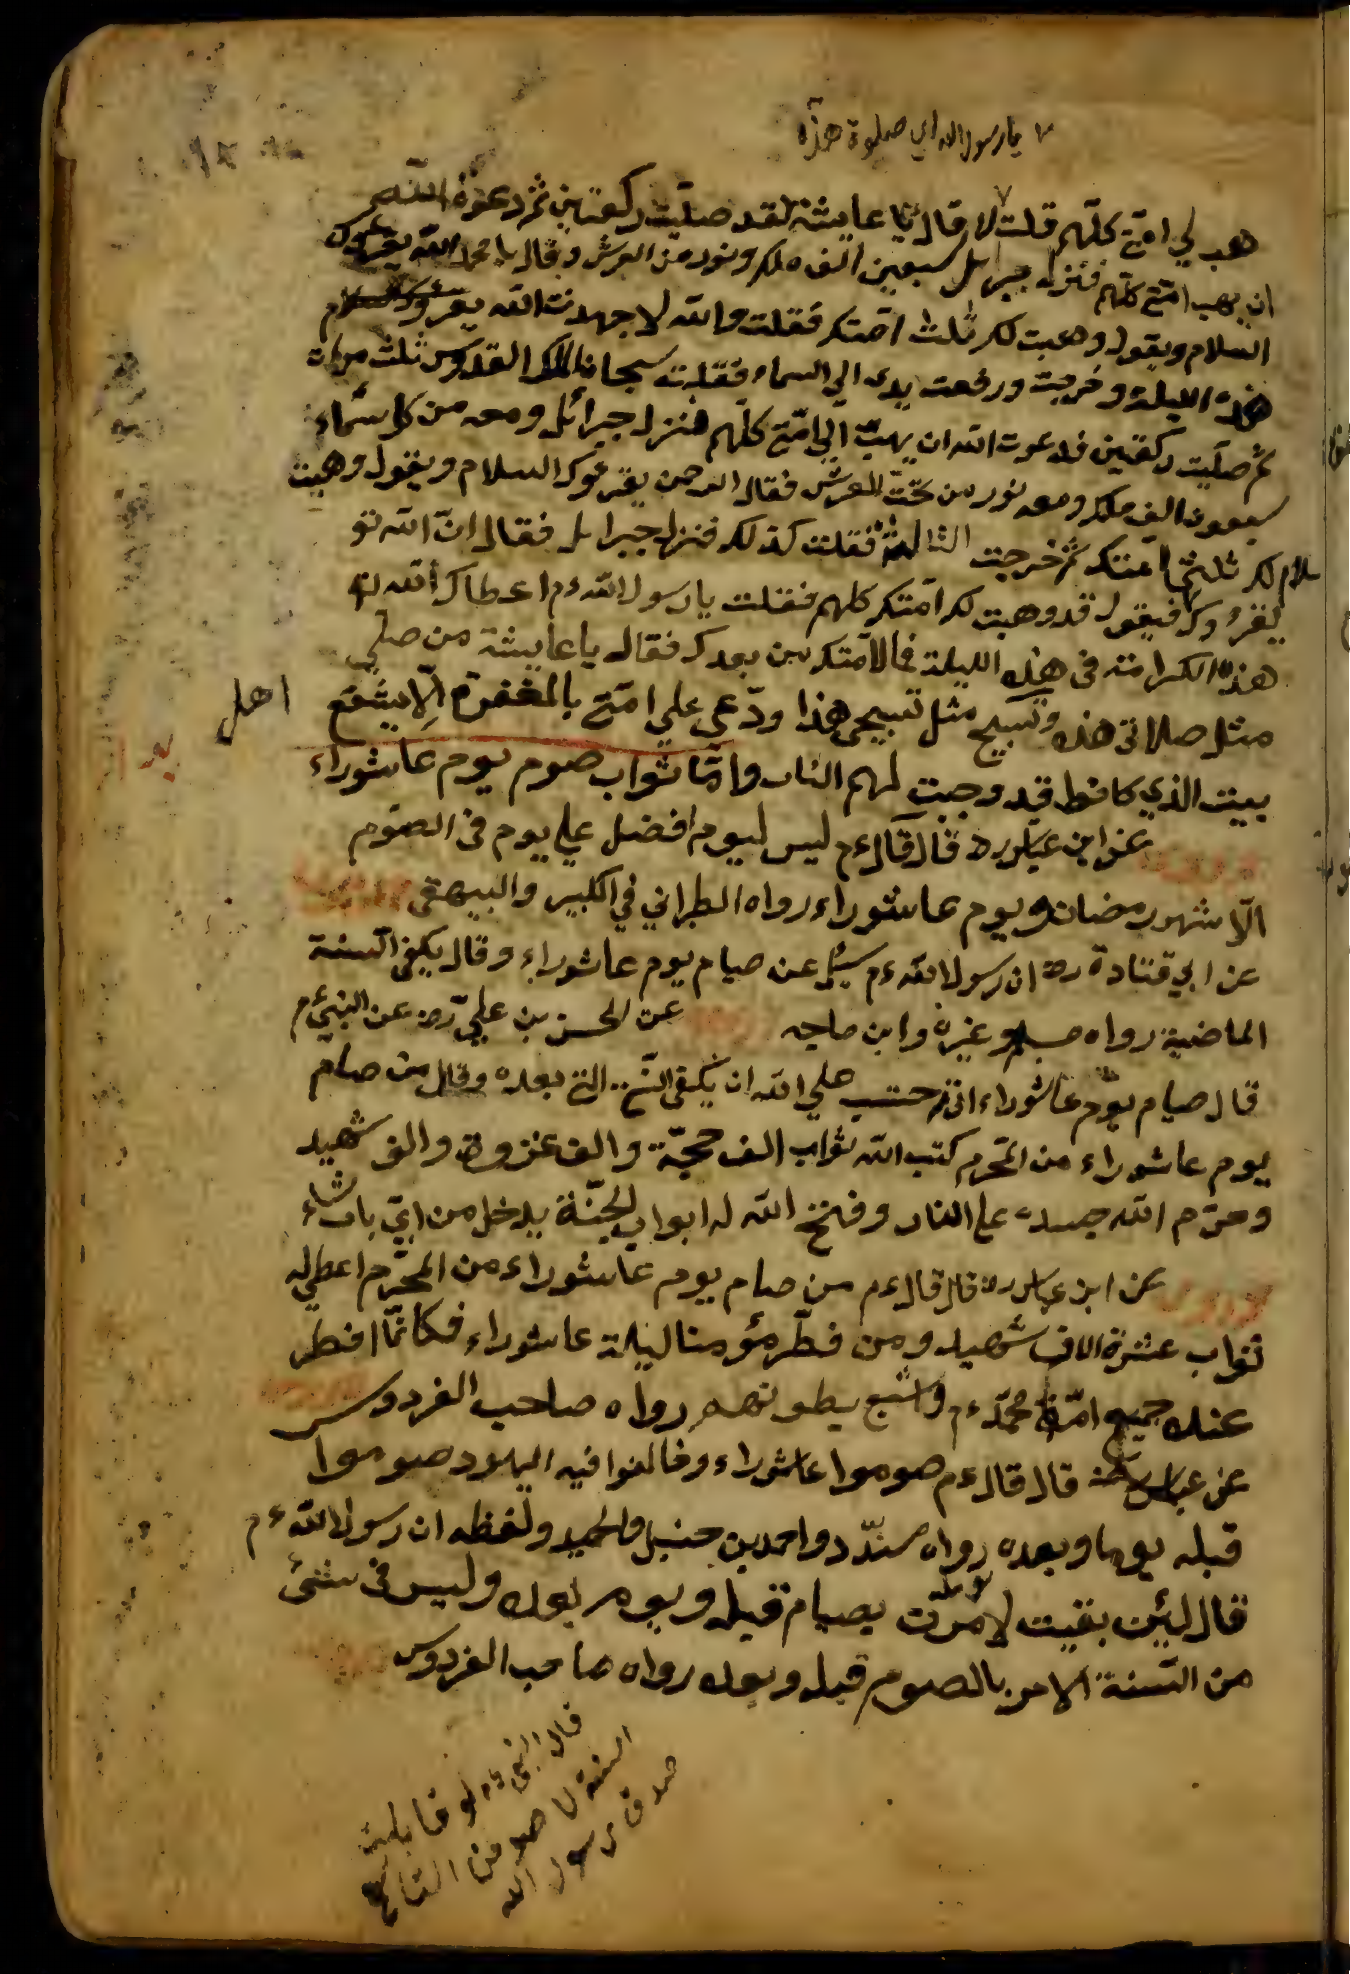 يا رسول الله اي صلوة هذه
هب لي امتي كلهم قلت لا قال يا عايشة لقد صليت ركعتين ثم دعوت الله
ان يهب امتي كلهم فنزل جبرائل سبعين الف ملك ونور من العرش وقال يا محمد الله يقرئك
السلام ويقول وهبت لك ثلث امتك فقلت والله لاجهدن الله يقرؤك السلام
هذه الليلة وخرجت ورفعت يدي الي السماء فقلت سبحان الملك القدوس ثلث مرات
ثم صليت ركعتين فدعوت الله ان يهب الي امتي كلهم فنزل جبرائل ومعه من كل سماء
سبعون الف ملك ومعه نور من تحت العرش فقال الرحمن يقرءوك السلام ويقول وهبت
لك ثلثي امتك ثم خرجت الثالثة فقلت كذلك فنزل جبرايل فقال ان الله تع
يقرؤك سلام فيقول قد وهبت لك امتك كلهم فقلت يا رسول الله ءم اعطاك الله
هذه الكرامة في هذه الليلة فما لامتك من بعدك فقال يا عايشة من صلي
مثل صلاتي هذه وتسبيح مثل تسبيحي هذا ودعي علي امتي بالمغفرة الا يشفع اهل
بيت الذي كانوا قد وجبت لهم النار واما ثواب صوم يوم عاشوراء
عن ابن عباس رض قال قال ءم ليس ليوم افضل علي يوم في الصوم
الا شهر رمضان ويوم عاشوراء رواه الطبراني في الكبير والبيهقي
عن ابي قتادة رض ان رسول الله ءم سئل عن صيام يوم عاشوراء وقال يكفر السنة
الماضية رواه مسلم وغيره وابن ماجه عن الحسن بن علي رض عن النبي ءم
قال صيام يوم عاشوراء اني احتسب علي الله ان يكفر السنة التي بعده وقال من صام
يوم عاشوراء من المحرم كتب الله ثواب الف حجة والف غزوة والف شهيد
وحرم الله جسده علي النار وفتح الله له ابواب الجنة يدخل من اي باب شاء
عن ابن عباس رض قال قال ءم من صام يوم عاشوراء من المحرم اعطي له
ثواب عشرة الاف شهيد ومن فطر مؤمنا ليلة عاشوراء فكانما افطر
عنده جميع امة محمد ءم واشبع بطونهم رواه صاحب الفردوس
عن عباس رض قال قال ءم صوموا عاشوراء وخالفوا فيه اليهود صوموا
قبله يوما وبعده رواه مسدد واحمد بن حنبل والحميد ولفظه ان رسول الله ءم
قال لئن بقيت لامرت بصيام قبله ويوم بعده وليس في شئ
من السنة الامر بالصوم قبله وبعده رواه صاحب الفردوس
قال النبي ءم لو قابلت
السنة لاصومن التاسع
صدق رسول الله